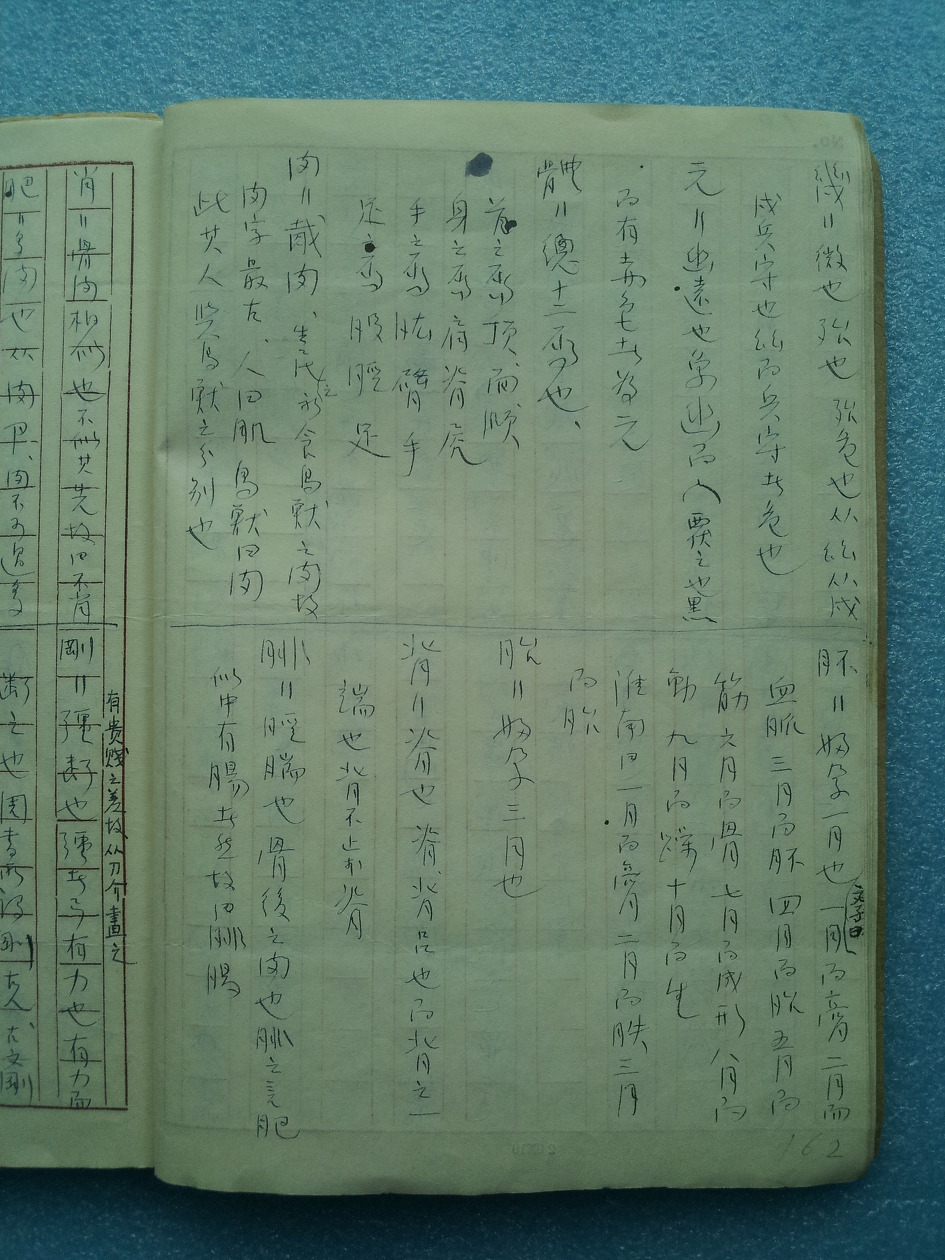 幾〃微也殆也殆危也从𢆶从戍
戍兵守也𢆶而兵守者危也
元〃幽遠也象幽而入覆之也黑
而有赤色者為元
體〃總十二屬也、
首之屬頂、面頤
身之屬肩脊尻
手之屬肱臂手
足之屬股脛足
肉〃胾肉、生民之初食鳥獸之肉故
肉字最古、人曰肌鳥獸曰肉
此其人與鳥獸之分別也
胚〃婦孕一月也文子曰一月而膏二月而
血脈三月而胚四月而胎五月而
筋六月而骨七月而成形八月而
動九月而躁十月而生
淮南曰一月而膏二月而胅三月
而胎
胎〃婦孕三月也
背〃脊也脊背呂也而背之一
端也背不止於脊
腓〃脛腨也骨後之肉也腓之言肥
似中有腸者然故曰腓腸
162
肖〃骨肉相似也不似其先故曰不肖
肥〃多肉也从肉卪、肉不可過多
有贵賤之差故从刀介畫之
剛〃彊斷也彊者弓有力也有力而
斷之也周書所謂剛克、古文剛